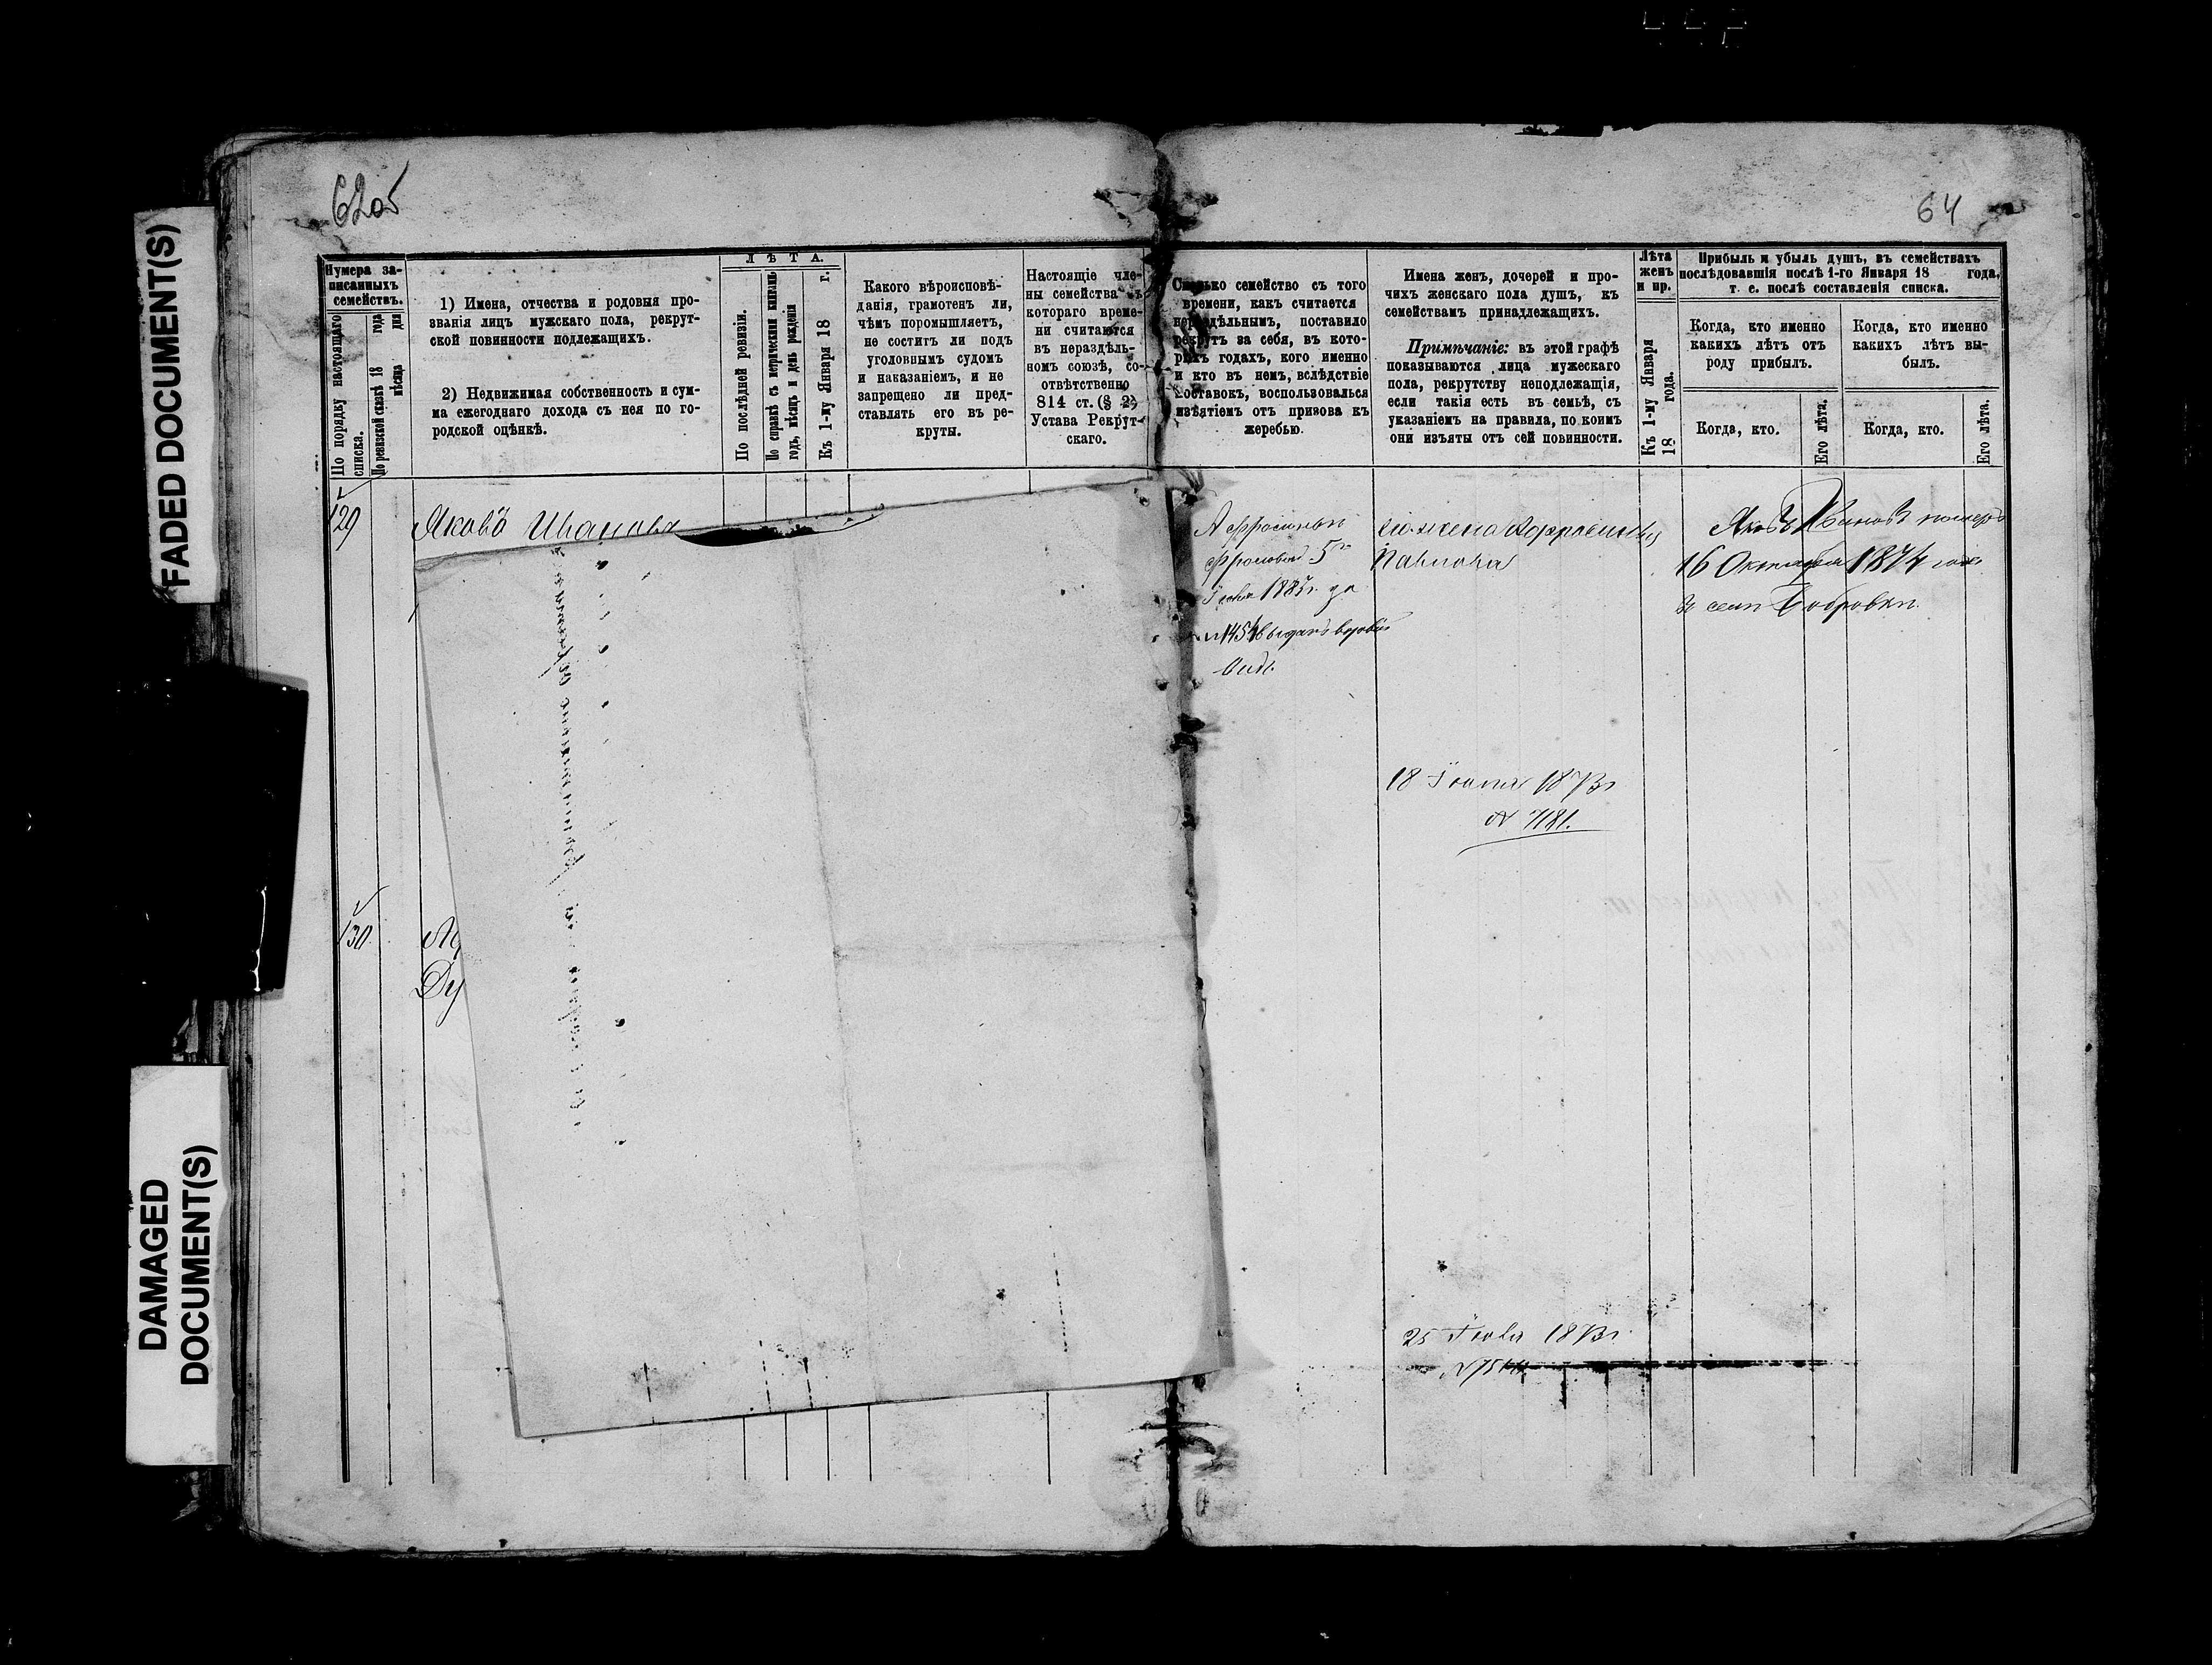 FADED DOCUMENT(S)
DAMAGED
DOCUMENT(S)
62об
64
Нумера за-
писанныхъ
семействъ.
По порядку настоящаго
списка.
По ревизской сказкѣ 18 года
мѣсяца дня
1) Имена, отчества и родовыя про-
званія лицъ мужскаго пола, рекрут-
ской повинности подлежащихъ.
2) Недвижимая собственность и сум-
ма ежегоднаго дохода съ нея по го-
родской оцѣнкѣ.
ЛѢТА.
По послѣдней ревизіи.
По справкѣ съ метрическими книгами
годъ, мѣсяцъ и день рожденія
Къ 1-му Января 18 г.
Какого вѣроисповѣ-
данія, грамотенъ ли,
чѣмъ поромышляетъ,
не соститъ ли подъ
уголовнымъ судомъ
и наказаніемъ, и не
запрещено ли пред-
ставлять его въ ре-
круты.
Настоящіе чле-
ны семейства съ
котораго време-
ни считаются
въ нераздѣль-
номъ союзѣ, со-
отвѣтственно
814 ст. (§ 2)
Устава Рекрут-
скаго.
Сколько семейство съ того
времени, какъ считается
нераздѣльнымъ, поставило
рекрутъ за себя, въ кото-
рыхъ годахъ, кого именно
и кто въ немъ, вслѣдствіе
поставокъ, воспользовался
изъятіемъ отъ призова къ
жеребью.
Имена женъ, дочерей и про-
чихъ женскаго пола душъ, къ
семействамъ принадлежащихъ.
Примѣчаніе: въ этой графѣ
показываются лица мужескаго
пола, рекрутству неподлежащія,
если такія есть въ семьѣ, съ
указаніемъ на правила, по коимъ
они изъяты отъ сей повинности.
Лѣта
женъ
и пр.
Къ 1-му Января
18 года.
Прибыль и убыль душъ, въ семействахъ
послѣдовавшія послѣ 1-го Января 18 года,
т. е. послѣ составленія списка.
Когда, кто именно
какихъ лѣтъ отъ
роду прибылъ.
Когда, кто именно
какихъ лѣтъ вы-
былъ.
Когда, кто.
Его лѣта.
Когда, кто.
Его лѣта.
129
Яковъ Ивановъ
5го
1883г. за
его жена
Павлова
Яковъ Ивановъ померъ
16 Октября 1874 года
въ селѣ Бобровкѣ.
18 Іюня 1873г
№ 7181.
130.
25 Іюля 1873г.